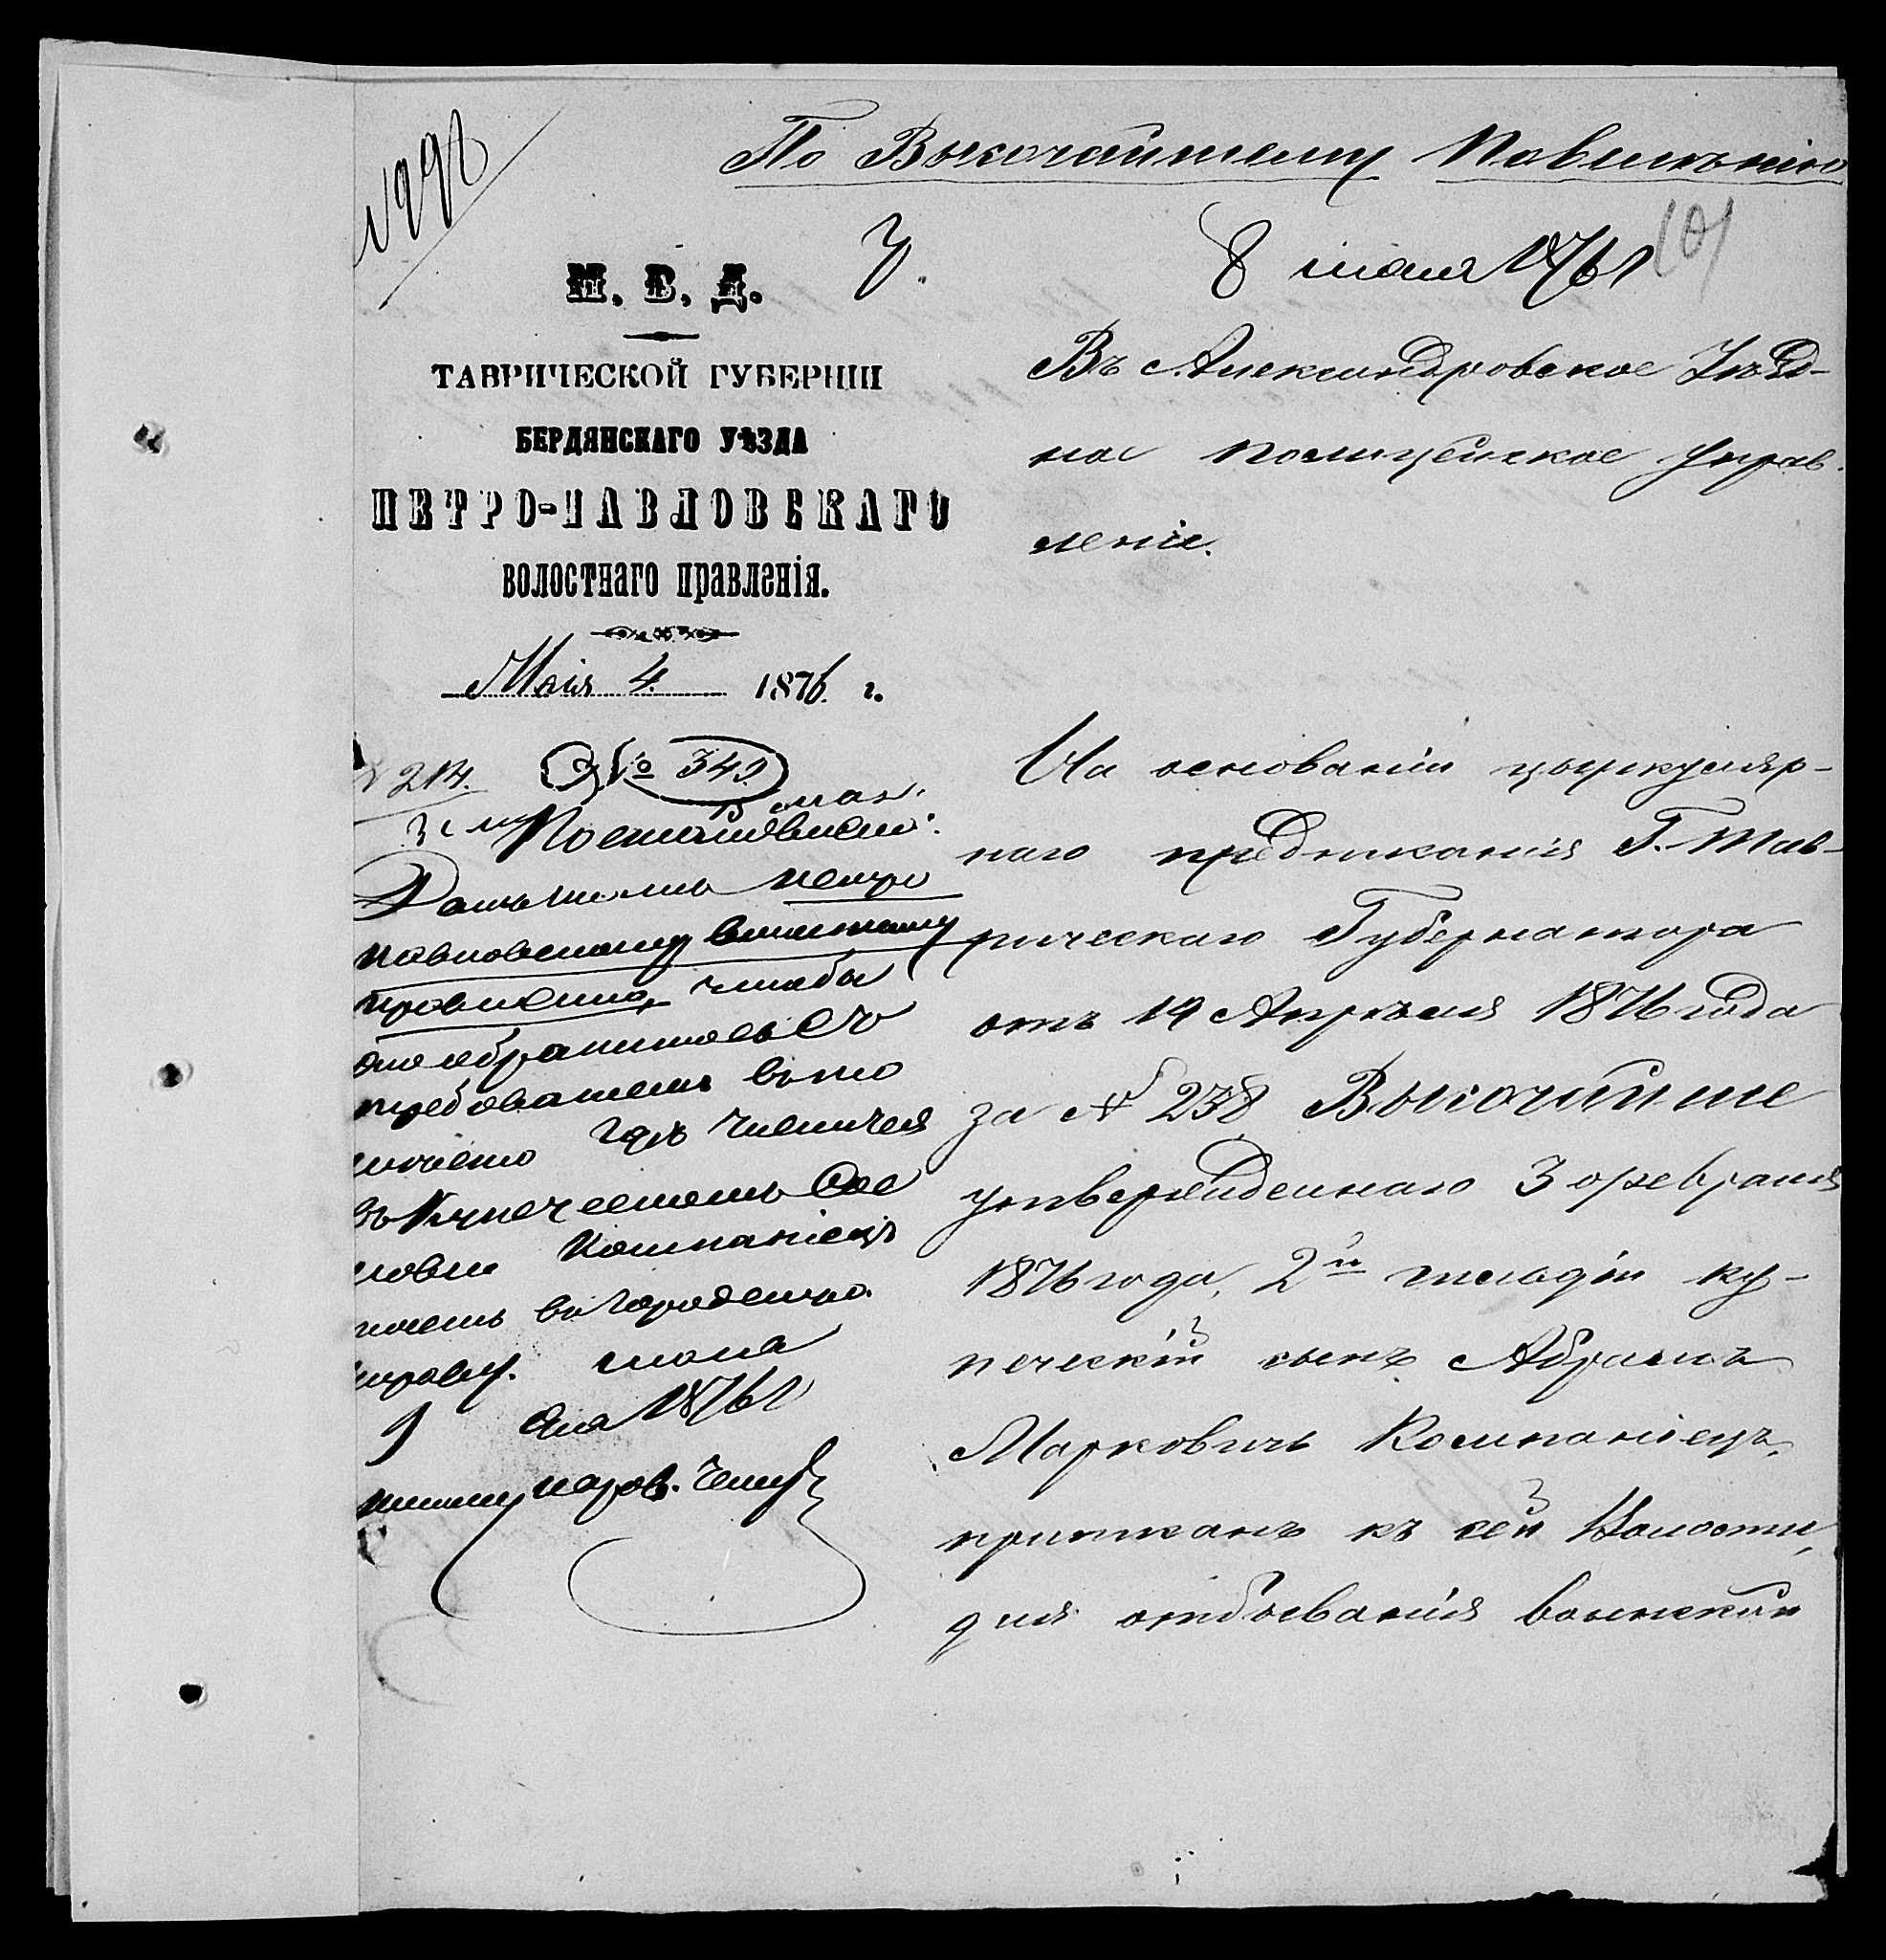 По Высочайшему Повелѣнію
У.
8 іюля 1876 г
М. В. Д.
ТАВРИЧЕСКОЙ ГУБЕРНІИ
БЕРДЯНСКАГО УѢЗДА
ПЕТРО-ПАВЛОВСКАГО
ВОЛОСТНАГО ПРАВЛЕНІЯ.
Маія 4. 1876. г.
№ 349
Въ Александровское Уѣзд-
ное Полицейское Управ-
леніе.
На основаніи циркуляр-
наго предписанія Г. Тав-
рическаго Губернатора
отъ 19 Апрѣля 1876 года
за № 238 Высочайше
утвержденнаго 3 февраля
1876 года, 2й гильдіи ку-
печескій сынъ Абрамъ
Марковичъ Компаніецъ,
приписанъ къ сей Волости,
для отбыванія воинской
№ 214.
Постановлено:
Дать знать Петро
павловскому волостному
правленію, чтобы
оно обратилось съ
требованіемъ
гдѣ числится
въ Купеческомъ Сос
ловіи Компаніецъ
въ Городскую
управу. іюля
9 дня 1876 г